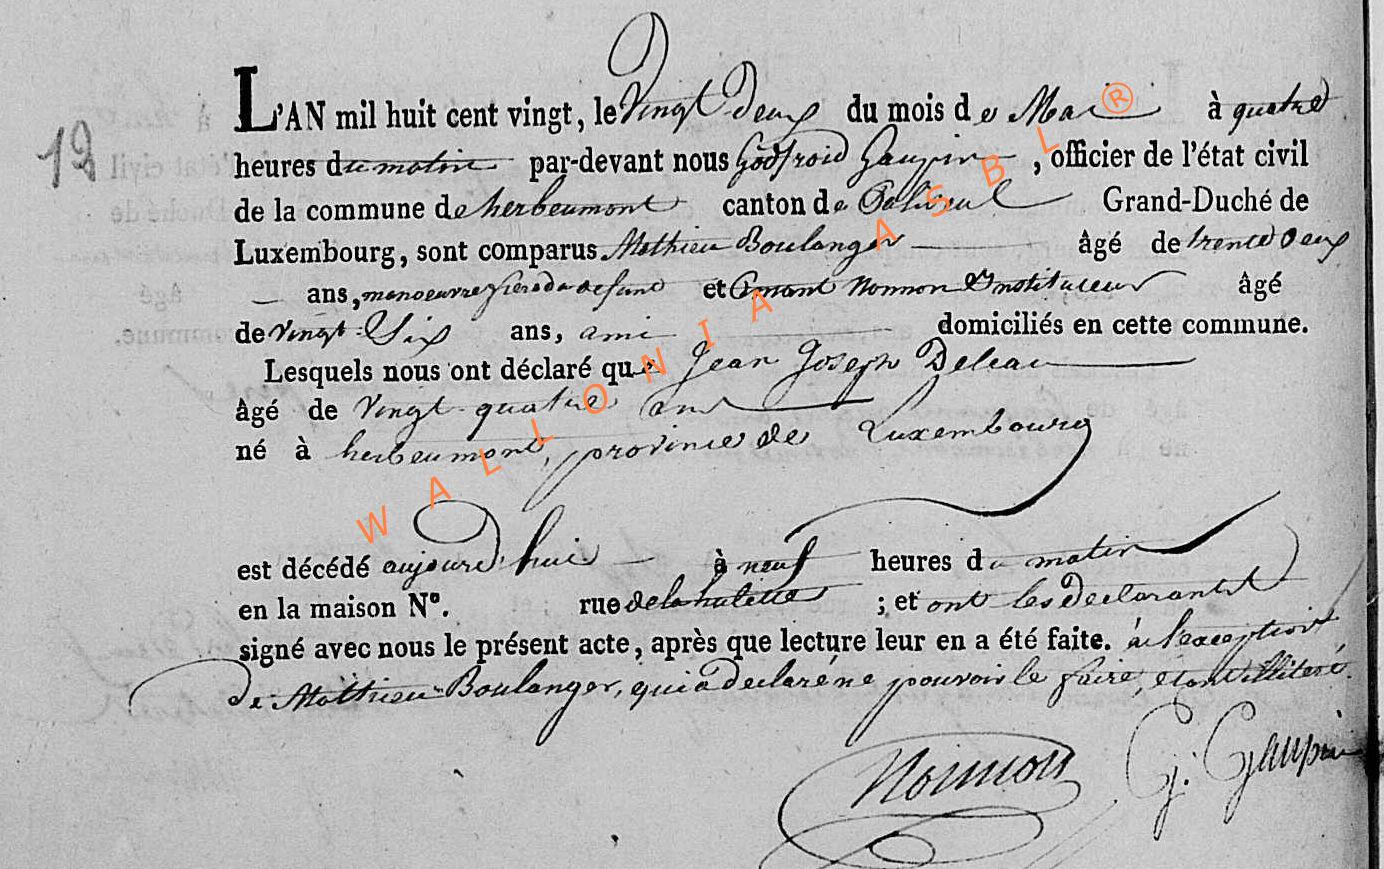 L'AN mil huit cent vingt, le Vingt Deux du mois de Mai à quatre
12 heures du matin par-devant nous Godfroid Gaupin, officier de l'état civil
de la commune de herbeumont canton de Paliseul Grand-Duché de
Luxembourg, sont comparus Mathieu Boulanger âgé de trente Deux
ans, manoeuvre frere du defunt et Amant Nonnon Instituteur âgé
de Vingt Six ans, ami domiciliés en cette commune.
Lesquels nous ont déclaré que Jean Joseph Deleau
âgé de Vingt quatre ans
né à herbeumont, province de Luxembourg
est décédé aujourd'hui à neuf heures du matin
en la maison N°. rue de la hulette ; et ont les Declarants
signé avec nous le présent acte, après que lecture leur en a été faite. à l'exception
De Mathieu Boulanger, qui a Declaré ne pouvoir le faire, étant illiteré.
Nonnon G. Gaupin
WALLONIA ASBL ®